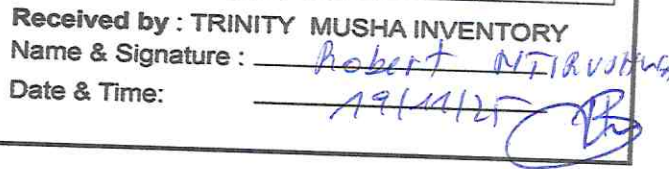 Received by : TRINITY MUSHA INVENTORY
Name & Signature : Robert
Date & Time: 19/11/25